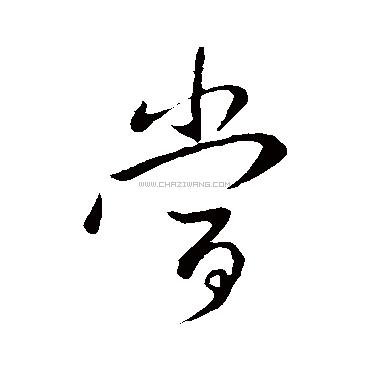 嘗
WWW.CHAZIWANG.COM